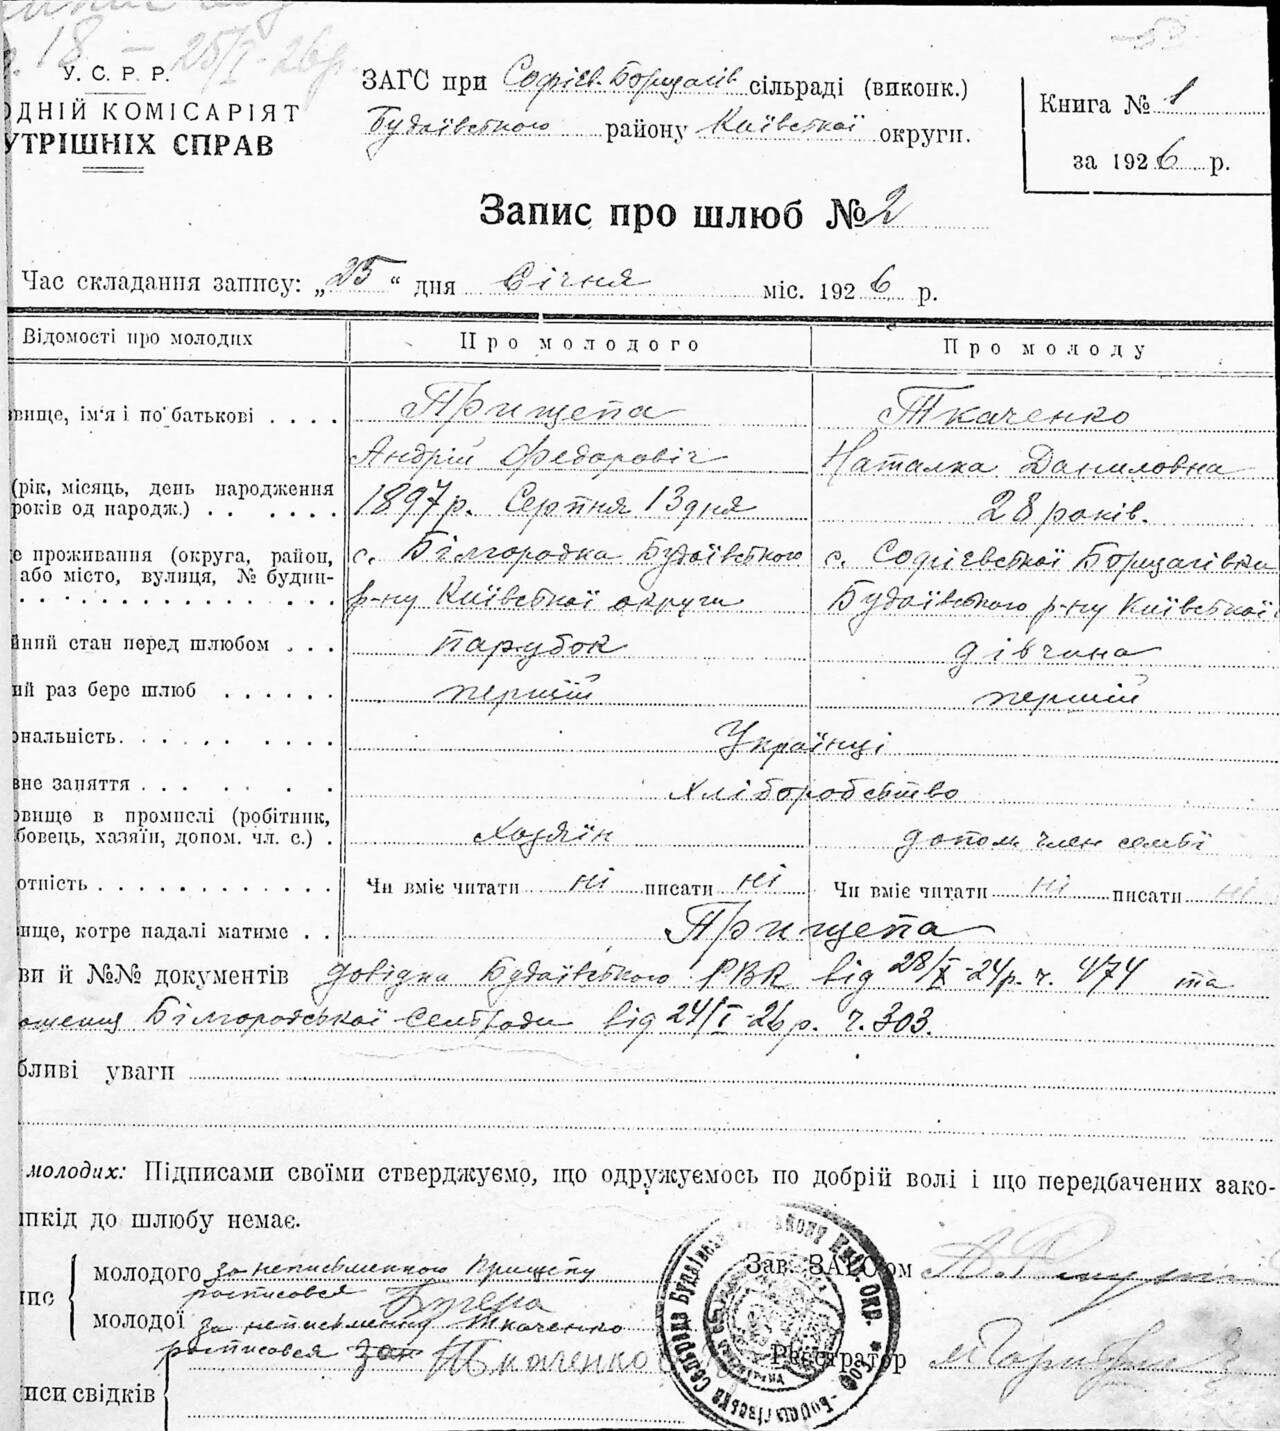 18 – 25/I 26р.
У. С. Р. Р.
ОДНІЙ КОМІСАРІЯТ
УТРІШНІХ СПРАВ
ЗАГС при Софієв. Борщагів сільраді (виконк.)
Будаївського району Київської округи.
Книга № 1
за 1926 р.
Запис про шлюб № 2
Час складання запису: „25“ дня Січня міс. 1926 р.
Відомості про молодих
Про молодого
Про молоду
вище, ім'я і по батькові . . . .
Прищепа
Ткаченко
Андрій Федоровіч
Наталка Даниловна
(рік, місяць, день народження
років од народж.) . . . . . .
1897 р. Серпня 13 дня
28 років.
е проживання (округа, район,
або місто, вулиця, № будин-
с. Білгородка Будаївського
с. Софієвської Борщагівки
р-ну Київської округи
Будаївського р-ну Київської
йний стан перед шлюбом . . .
парубок
дівчина
ий раз бере шлюб . . . . . .
перший
перший
ональність. . . . . . . . . .
Українці
вне заняття . . . . . . . .
Хліборобство
овище в промислі (робітник,
бовець, хазяїн, допом. чл. с.) .
Хозяїн
допом. член семьї
отність . . . . . . . . . . . .
Чи вміє читати ні писати ні
Чи вміє читати ні писати ні
ище, котре надалі матиме . .
Прищепа
ви й №№ документів довідка Будаївського РВК від 28/X-24р. ч. 474 та
ошения Білгородської Сельради від 24/I-26 р. ч. 303.
бливі уваги
молодих: Підписами своїми стверджуємо, що одружуємось по добрій волі і що передбачених зако-
шкід до шлюбу немає.
пис
молодого за неписьменного Прищепу
росписовся
молодої за неписьменну Ткаченко
росписовся за Ткаченко
Зав. ЗАГС'ом
Реєстратор
писи свідків